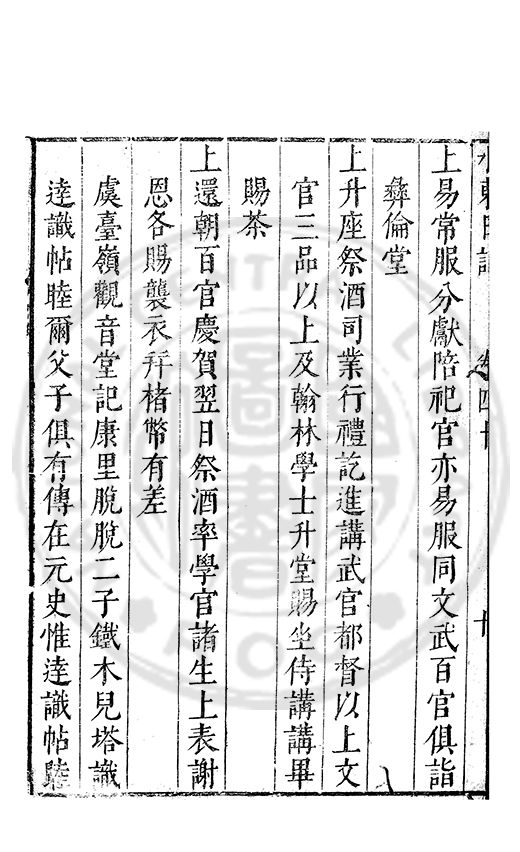 水東日記 卷四十 十
上易常服分獻陪祀官亦易服同文武百官俱詣
彝倫堂
上升座祭酒司業行禮訖進講武官都督以上文
官三品以上及翰林學士升堂賜坐侍講講畢
賜茶
上還朝百官慶賀翌日祭酒率學官諸生上表謝
恩各賜襲衣并楮幣有差
虞臺嶺觀音堂記康里脫脫二子鐵木兒塔識
逹識帖睦爾父子俱有傳在元史惟逹識帖睦